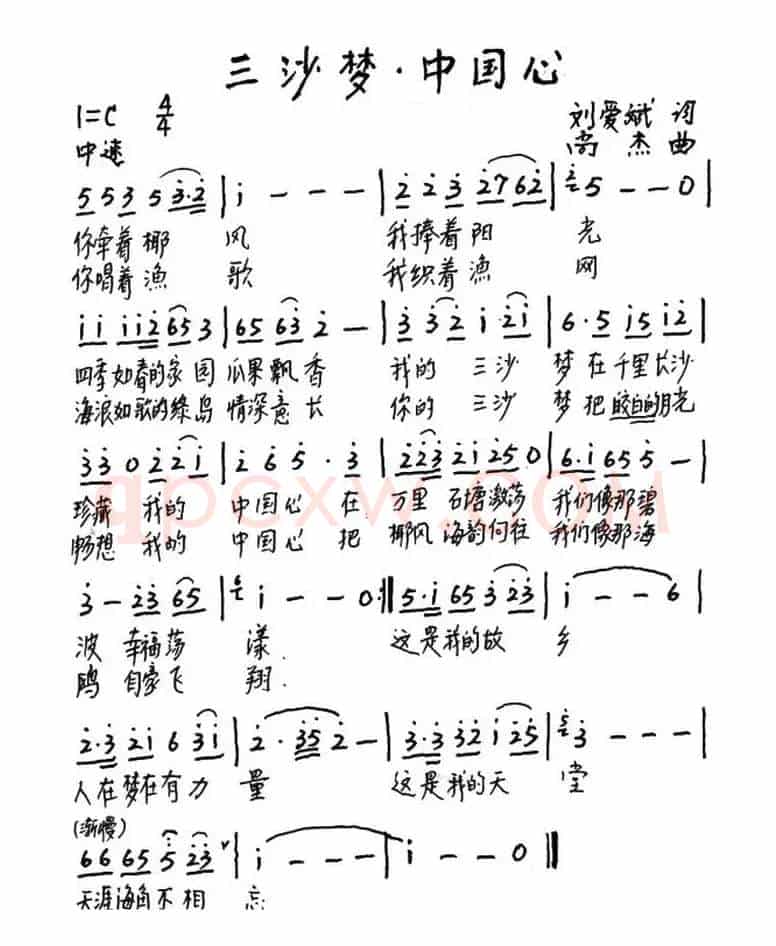 三沙梦·中国心
1=C 4/4 刘爱斌 词
中速 尚杰 曲
5 5 3 5 3·2 | i - - - | 2 2 3 2 7 6 2 | 5 - - 0 |
你牵着椰 风 我捧着阳 光
你唱着渔 歌 我织着渔 网
i i i i 2 6 5 3 | 6 5 6 3 2 - | 3 3 2 i 2 i | 6·5 i 5 i 2 |
四季如春的家园 瓜果飘香 我的 三沙 梦在千里长沙
海浪如歌的绿岛 情深意长 你的 三沙 梦把皎白的月光
3 3 0 2 2 i | 2 6 5·3 | 2 2 3 2 i 2 5 0 | 6·i 6 5 5 - |
珍藏 我的 中国心 在 万里 石塘激荡 我们像那碧
畅想 我的 中国心 把 椰风 海韵向往 我们像那海
3 - 2 3 6 5 | i - - 0 :|| 5·i 6 5 3 2 3 | i - - 6 |
波 幸福荡 漾. 这是我的故 乡
鸥 自豪飞 翔.
2·3 2 i 6 3 i | 2·3 5 2 - | 3·3 3 2 i 2 5 | 3 - - - |
人在梦在有力 量 这是我的天 堂
(渐慢)
6 6 6 5 5 2 3 | i - - - | i - - 0 ||
天涯海角不相 忘
qpcxw.com